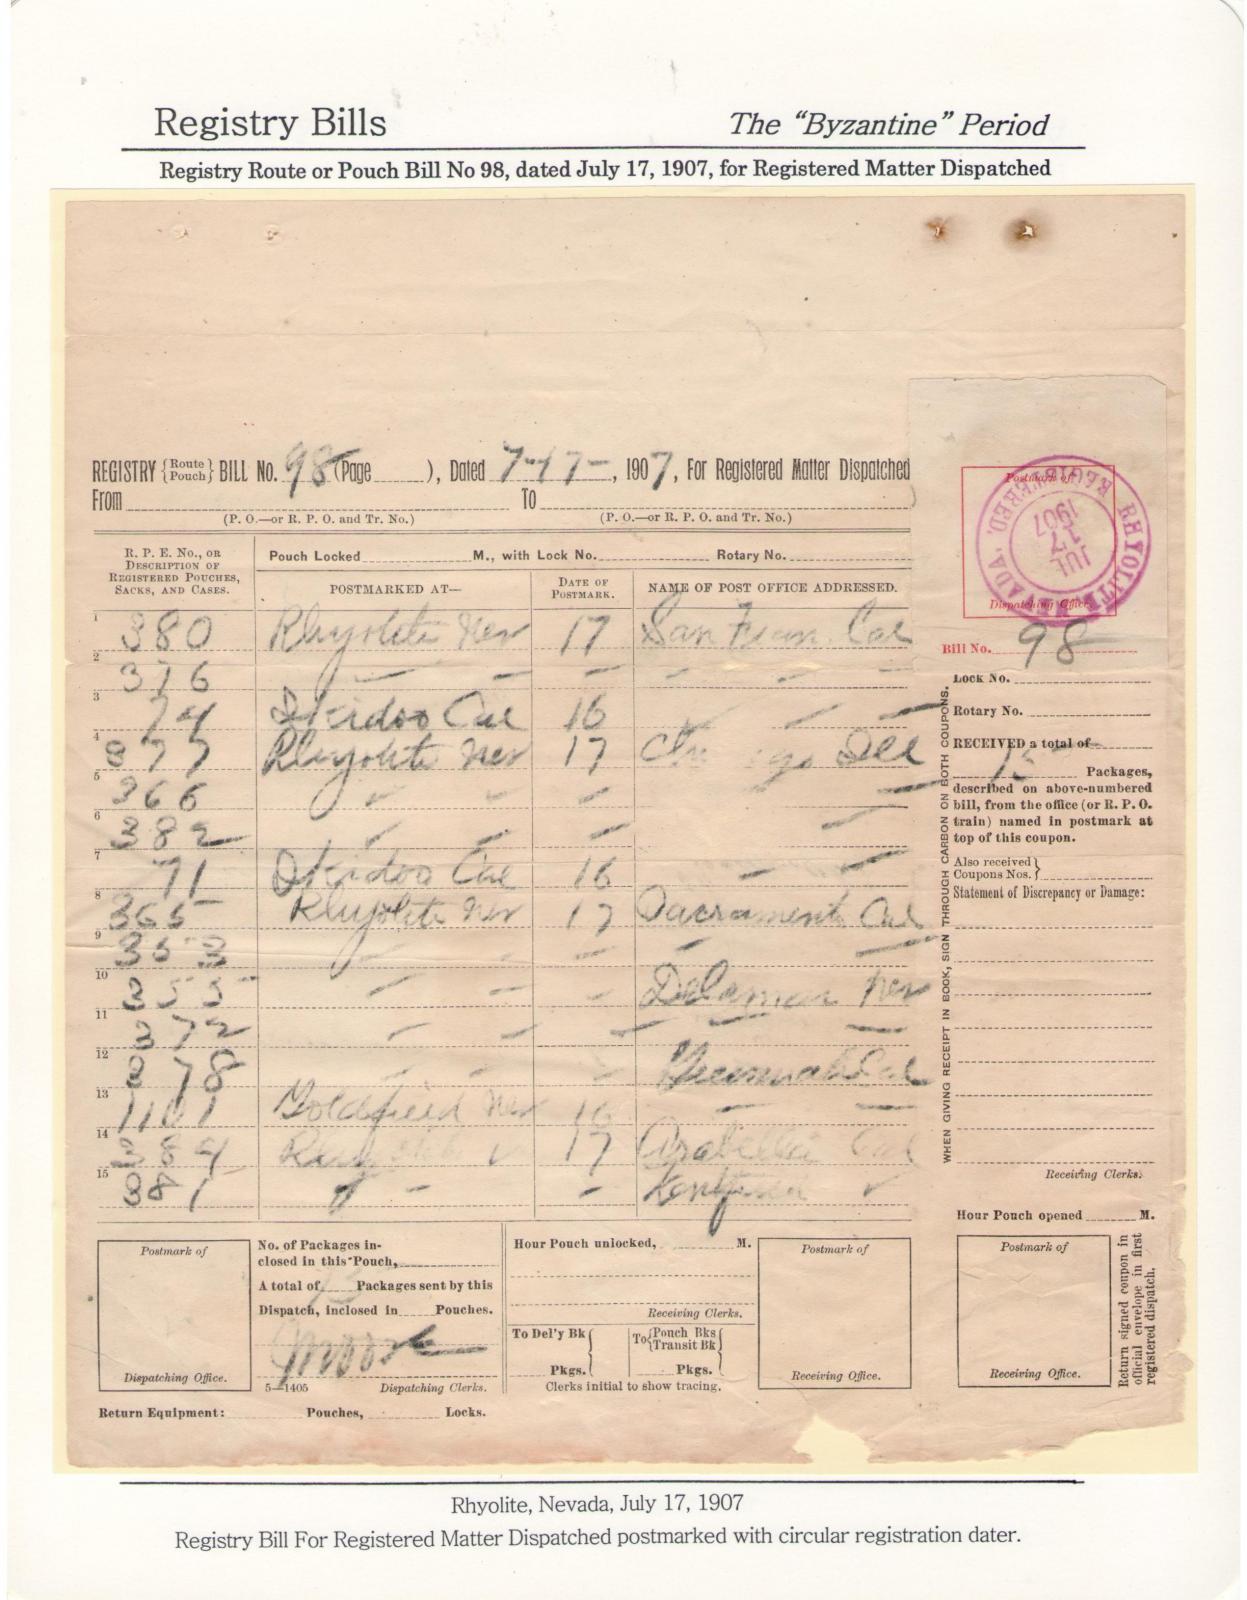 Registry Bills
The "Byzantine" Period
Registry Route or Pouch Bill No 98, dated July 17, 1907, for Registered Matter Dispatched
REGISTRY {Route Pouch} BILL No. 98 (Page ), Dated 7-17-, 1907, For Registered Matter Dispatched
From To
(P. O.—or R. P. O. and Tr. No.) (P. O.—or R. P. O. and Tr. No.)
R. P. E. No., OR DESCRIPTION OF REGISTERED POUCHES, SACKS, AND CASES.
Pouch Locked M., with Lock No. Rotary No.
POSTMARKED AT— DATE OF POSTMARK. NAME OF POST OFFICE ADDRESSED.
1 380 Rhyolite Nev 17 San Fran. Cal
2 376 — — — — — —
3 74 Skidoo Cal 16
4 377 Rhyolite Nev 17
5 366
6 382
7 71 Skidoo Cal 16
8 365 Rhyolite Nev 17 Sacramento Cal
9 353
10 355 Delamar Nev
11 372
12 378 Cal
13 1101 Goldfield Nev 16
14 384 17 Cal
15 381 Kentfield
Postmark of
Dispatching Office.
RHYOLITE, NEVADA, REGISTERED.
JUL
17
1907
Bill No. 98
Lock No.
Rotary No.
RECEIVED a total of
15 Packages,
described on above-numbered
bill, from the office (or R. P. O.
train) named in postmark at
top of this coupon.
Also received
Coupons Nos. }
Statement of Discrepancy or Damage:
WHEN GIVING RECEIPT IN BOOK, SIGN THROUGH CARBON ON BOTH COUPONS.
Receiving Clerks.
Hour Pouch opened M.
Postmark of
Receiving Office.
Return signed coupon in
official envelope in first
registered dispatch.
Postmark of
Dispatching Office.
No. of Packages in-
closed in this Pouch,
A total of 15 Packages sent by this
Dispatch, inclosed in Pouches.
Moore
5—1405 Dispatching Clerks.
Hour Pouch unlocked, M.
Receiving Clerks.
To Del'y Bk { To {Pouch Bks Transit Bk {
Pkgs. Pkgs.
Clerks initial to show tracing.
Postmark of
Receiving Office.
Return Equipment: Pouches, Locks.
Rhyolite, Nevada, July 17, 1907
Registry Bill For Registered Matter Dispatched postmarked with circular registration dater.